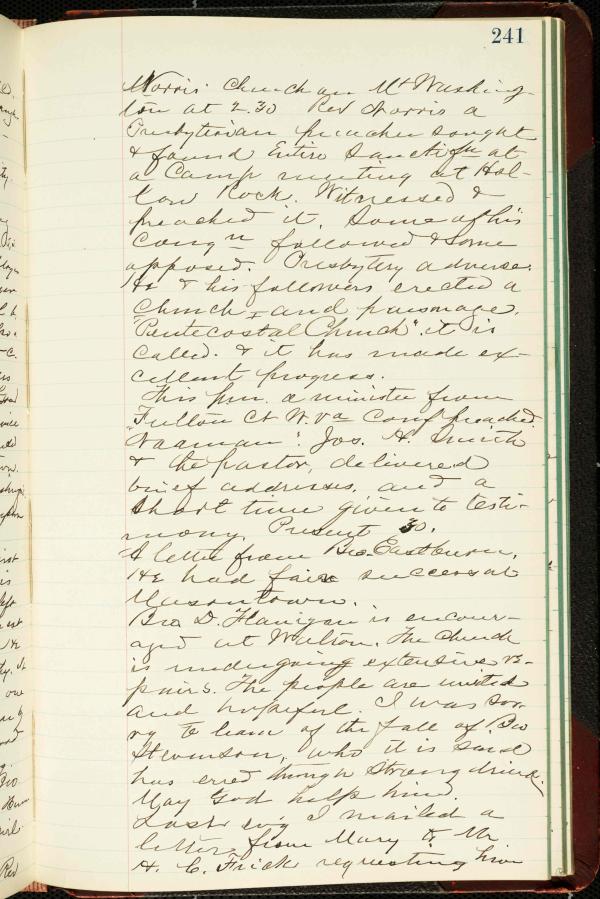 241
Norris' Church on Mt Washing-
ton at 2.30 Rev Norris a
Presbyterian preacher sought
& found Entire Sanctifn at
a Camp meeting at Hol-
low Rock. Witnessed &
preached it. Some of his
Congn followed & some
opposed. Presbytery adverse.
He & his followers erected a
Church and parsonage.
"Pentecostal Church" it is
Called. & it has made ex-
cellent progress.
This p.m. a minister from
Fulton Ct W. Va Conf preached
"Naaman". Jos. H. Smith
& the pastor, delivered
brief addresses, and a
Short time given to testi-
mony. Present 30.
A letter from Bro. Eastburn.
He had fair success at
Masontown.
Bro D. Flanigan is encour-
aged at Walton. The Church
is undergoing extensive re-
pairs. The people are united
and hopeful. I was sor-
ry to learn of the fall of Bro
Stevenson, who it is said
has erred through Strong drink.
May God help him.
Last ev'g I mailed a
letter from Mary to Mr
H. C. Frick requesting him